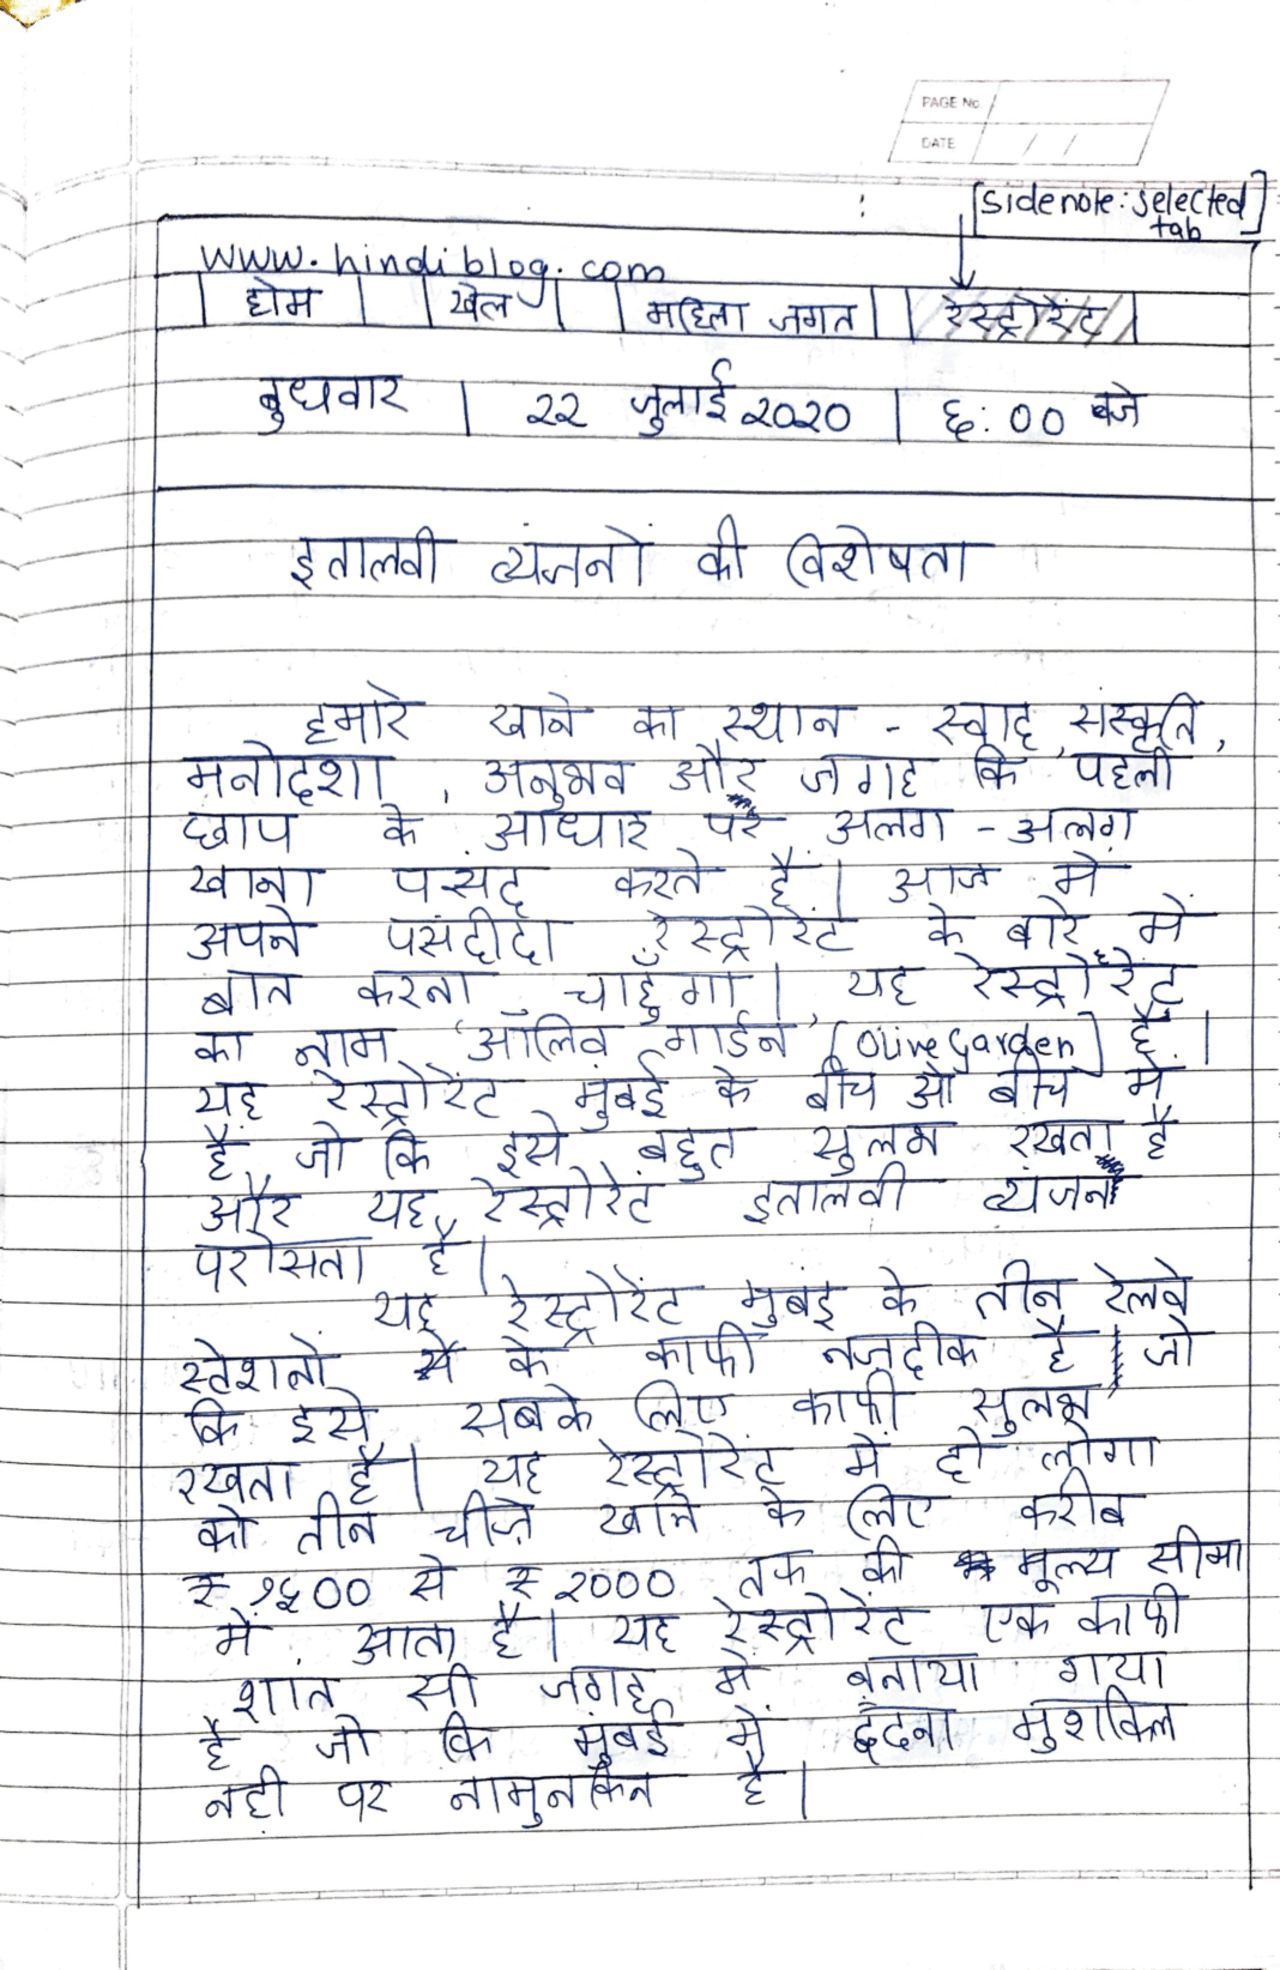 PAGE No.
DATE / /
[Sidenote: selected
tab]
www.hindiblog.com
होम | खेल | महिला जगत | रेस्ट्रोरेंट
बुधवार | २२ जुलाई २०२० | ६:०० बजे
इतालवी व्यंजनों की विशेषता
हमारे खाने का स्थान - स्वाद, संस्कृति,
मनोदशा, अनुभव और जगह कि पहली
छाप के आधार पर अलग - अलग
खाना पसंद करते है। आज मे
अपने पसंदीदा रेस्ट्रोरेंट के बारे में
बात करना चाहुँगा। यह रेस्ट्रोरेंट
का नाम 'ऑलिव गार्डन' [Olive Garden] है।
यह रेस्ट्रोरेंट मुंबई के बीच ओ बीच में
है जो कि इसे बहुत सुलभ रखता है
और यह रेस्ट्रोरेंट इतालवी व्यंजन
परोसता है।
यह रेस्ट्रोरेंट मुंबई के तीन रेलवे
स्टेशनो के काफी नज़दीक है जो
कि इसे सबके लिए काफी सुलभ
रखता है। यह रेस्ट्रोरेंट में दो लोगो
को तीन चीज़े खाने के लिए करीब
₹ १५०० से ₹ २००० तक की मूल्य सीमा
में आता है। यह रेस्ट्रोरेंट एक काफी
शांत सी जगह मे बनाया गया
है जो कि मुंबई में ढूंढना मुशकिल
नही पर नामुनकिन है।